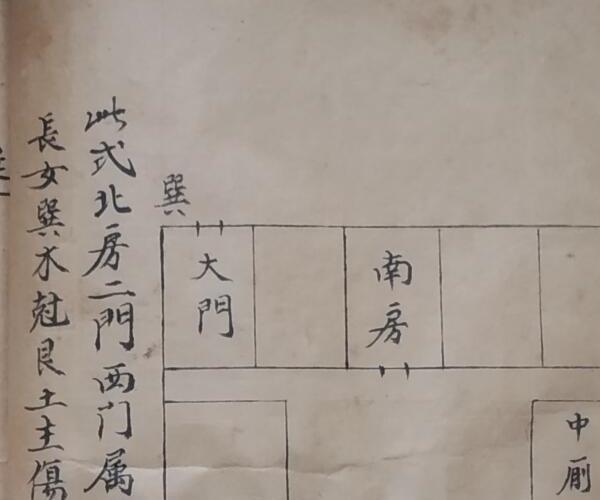 此式北房二門西门属
長女巽木尅艮土主傷
巽
大門
南房
中厠